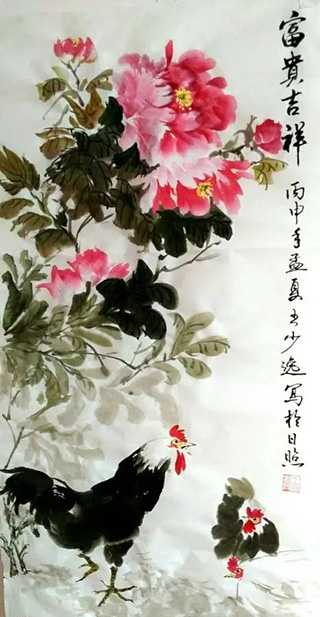 富貴吉祥
丙申年孟夏王少逸寫於日照